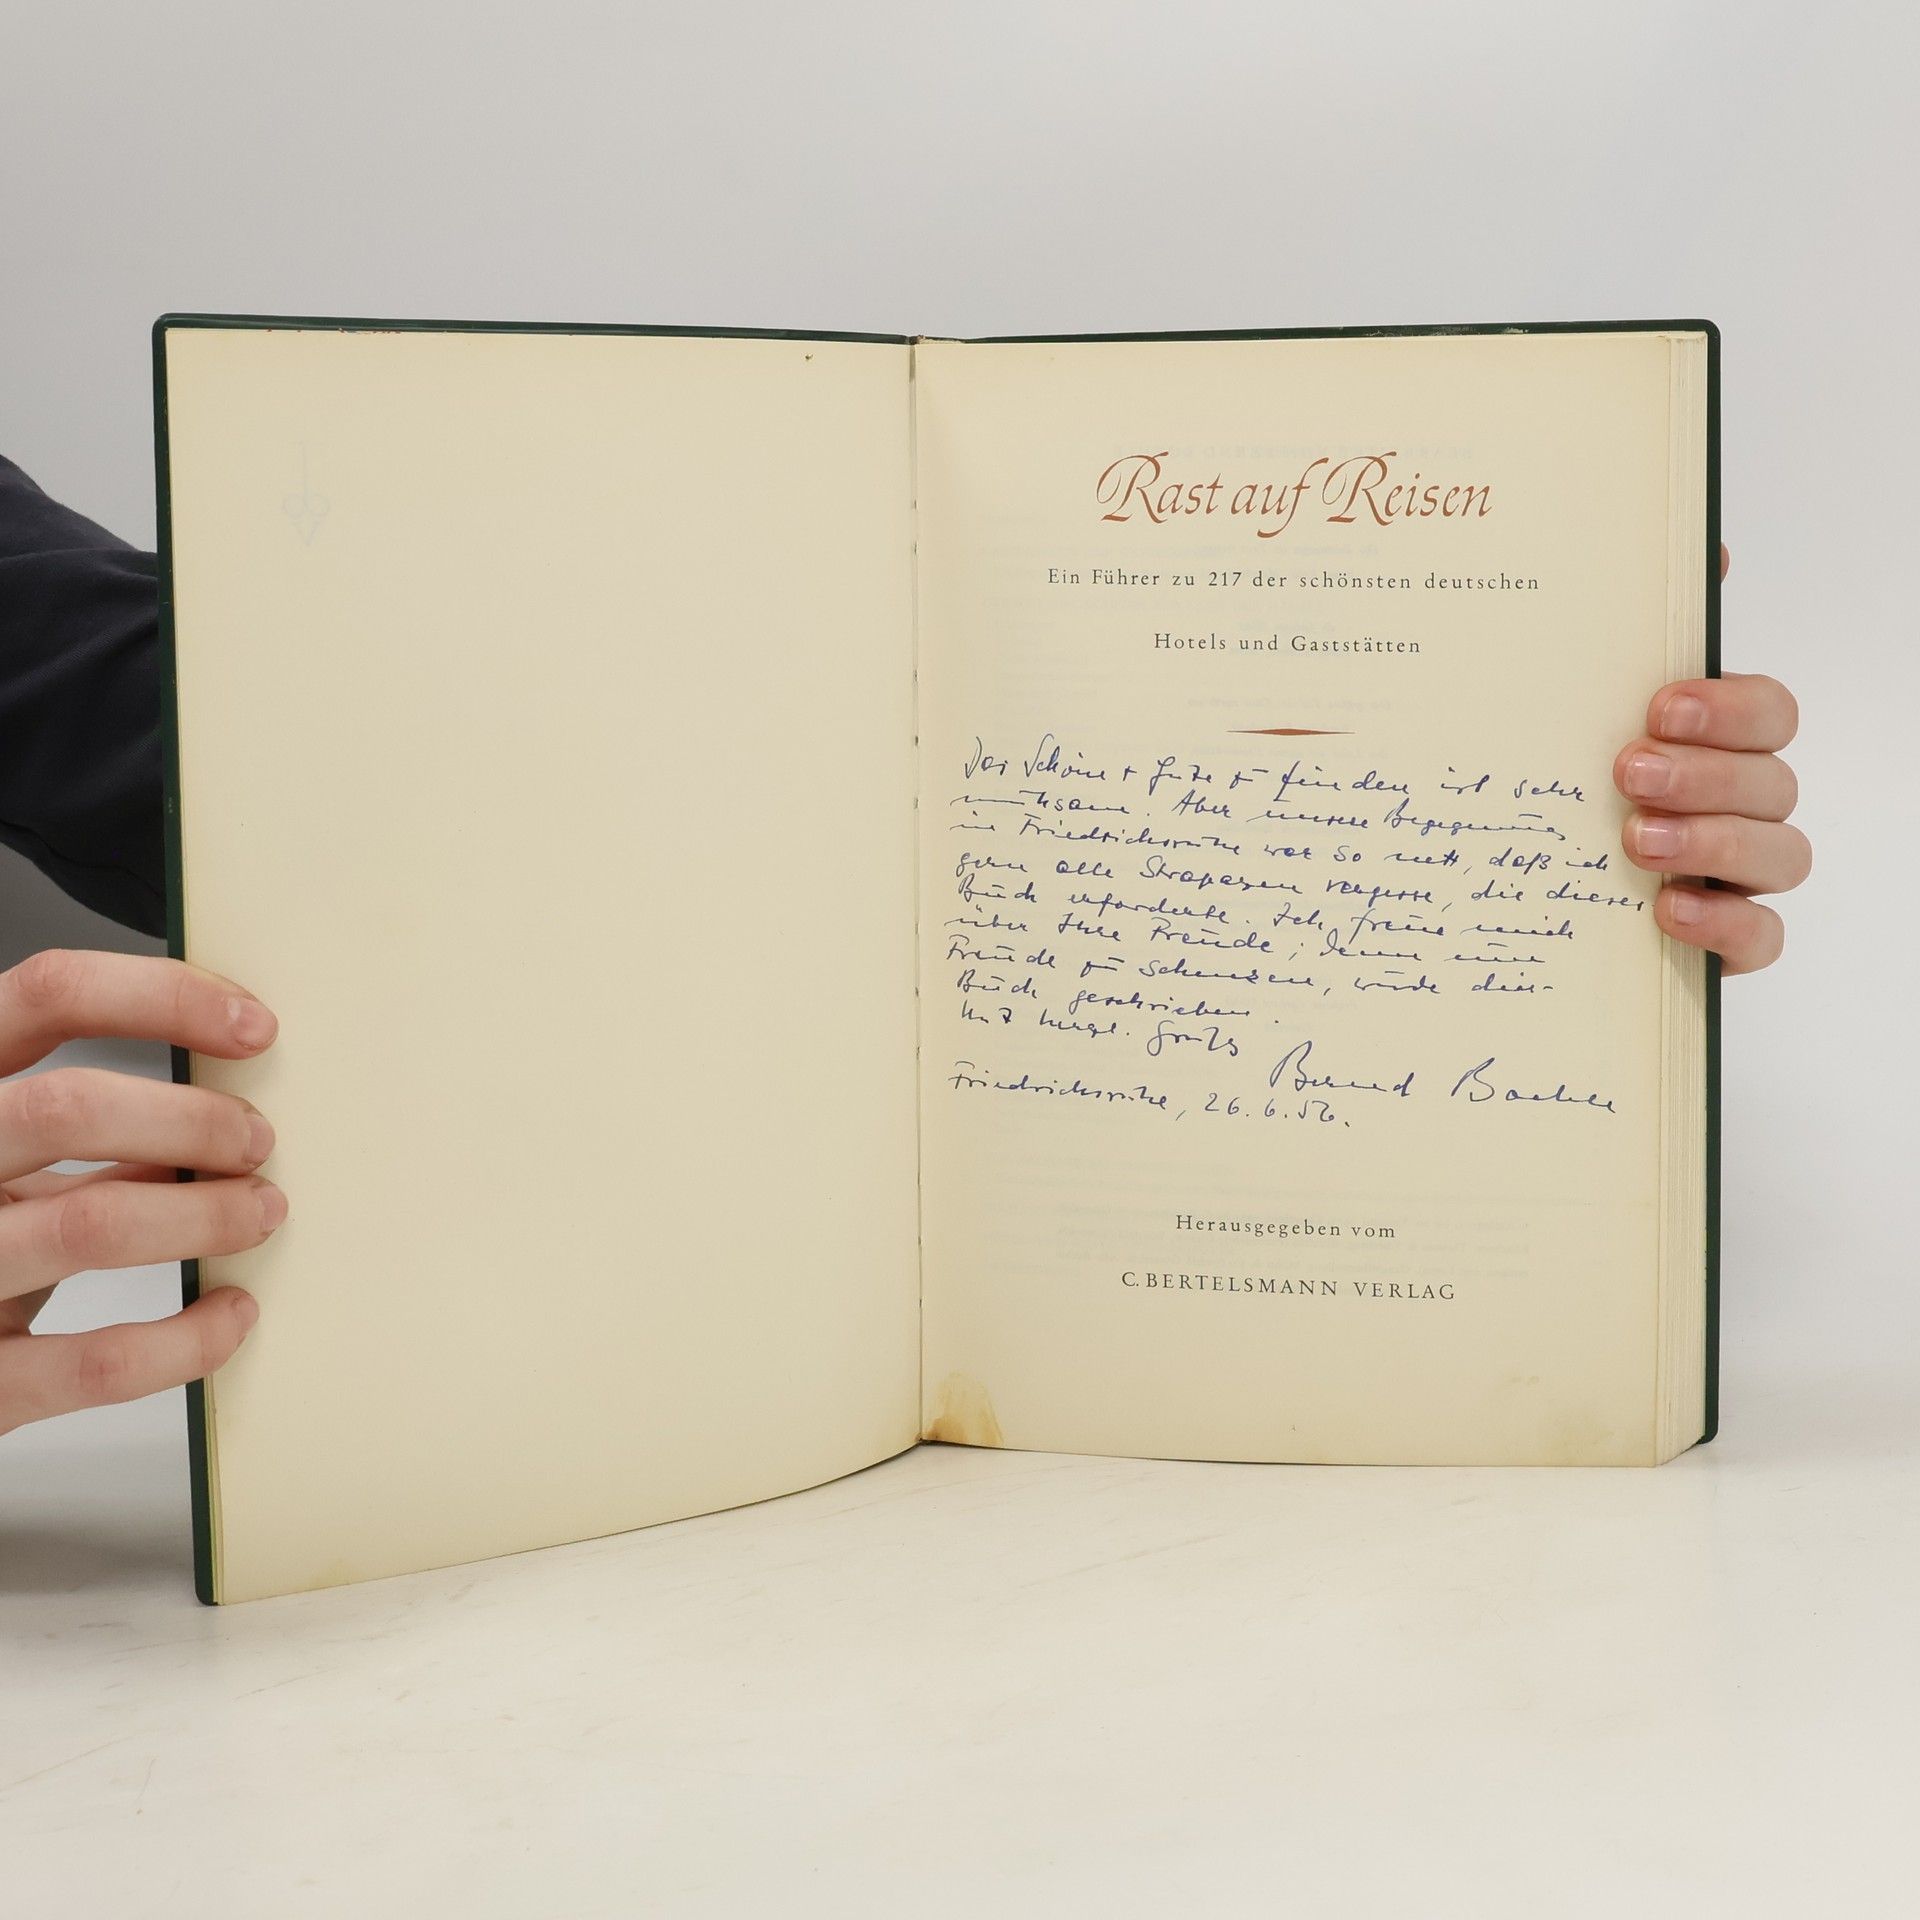 Rast auf Reisen
Ein Führer zu 217 der schönsten deutschen
Hotels und Gaststätten
Das Schöne + Gute zu finden ist sehr
mühsam. Aber unsere Begegnung
in Friedrichsruhe war so nett, daß ich
gern alle Strapazen vergesse, die dieses
Buch erforderte. Ich freue mich
über Ihre Freude; denn um
Freude zu schenken, wurde dies
Buch geschrieben.
Mit herzl. Gruß
Bernd Boehle
Friedrichsruhe, 26.6.56.
Herausgegeben vom
C. BERTELSMANN VERLAG